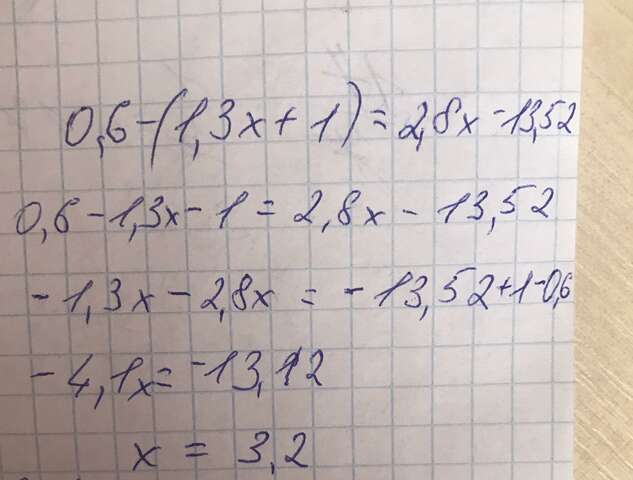 0,6-(1,3x+1)=2,8x-13,52
0,6-1,3x-1=2,8x-13,52
-1,3x-2,8x=-13,52+1-0,6
-4,1x=-13,12
x=3,2